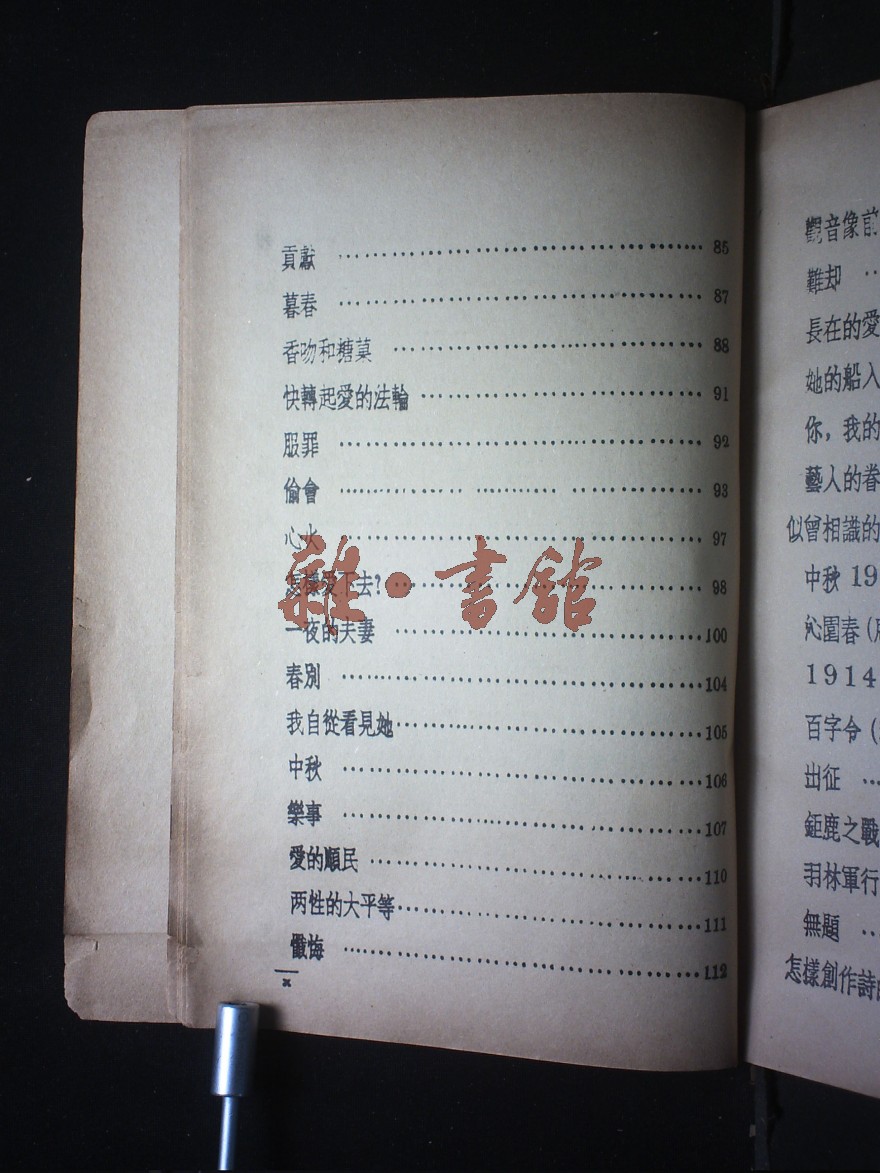 貢獻 85
暮春 87
香吻和糖菓 88
快轉起愛的法輪 91
服罪 92
偷會 93
心火 97
怎樣愛下去? 98
一夜的夫妻 100
春別 104
我自從看見她 105
中秋 106
樂事 107
愛的順民 110
两性的大平等 111
懺悔 112
x
雜·書館
觀音像前
難却
長在的愛
她的船入
你，我的
藝人的眷
似曾相識的
中秋 19
沁園春(
1914
百字令(
出征
鉅鹿之戰
羽林軍行
無題
怎樣創作詩